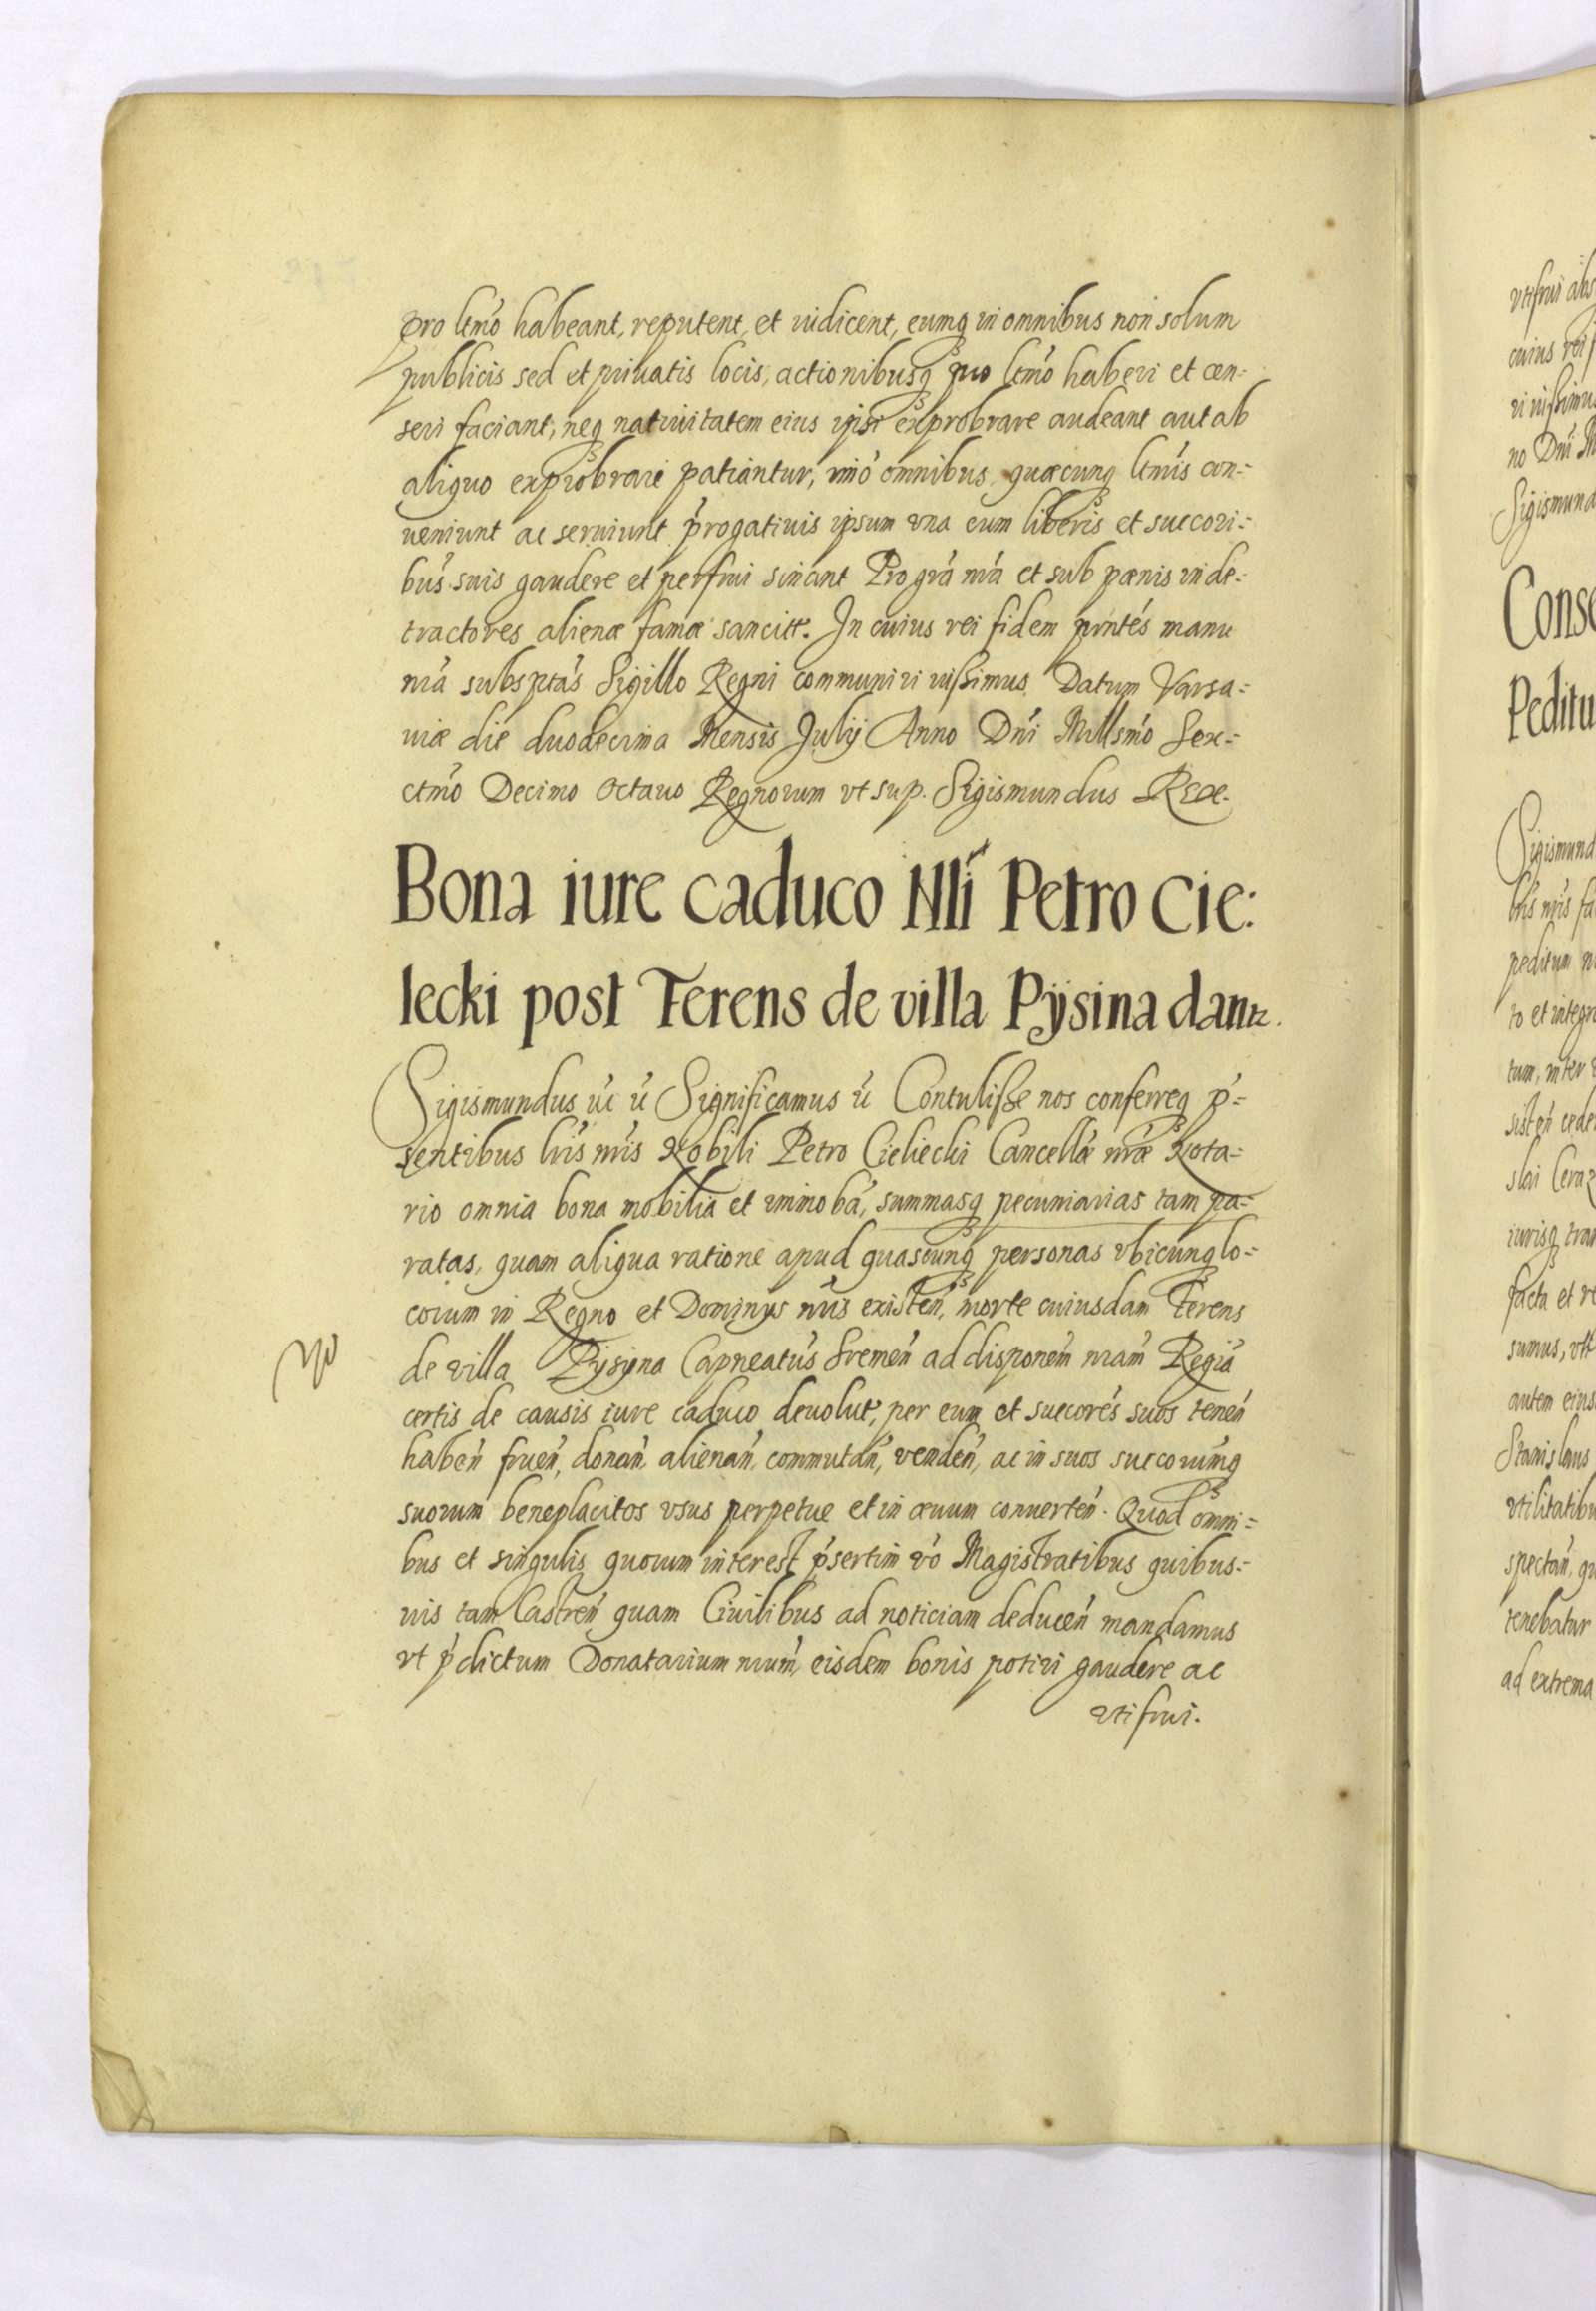 pro ltmó habeant, reputent, et iudicent, eumq in omnibus non solum
publicis sed et priuatis locis, actionibusq pro ltmó haberi et cen=
seri faciant, neq natiuitatem eius ipsi exprobrare audeant aut ab
aliquo exprobrari patiantur, imó omnibus quæcunq ltmis con=
ueniunt ac seruiunt prógatiuis ipsum vna cum liberis et succori=
bus suis gaudere et perfrui sinant Pro grá nrá et sub pœnis in de=
tractores alienæ famæ sancitt. In cuius rei fidem pńtes manu
nrá subsptas Sigillo Regni communiri iussimus Datum Varsa=
uiæ die duodecima Mensis Julij Anno Dńi Millsmó Sex=
ctmó Decimo Octauo Regnorum vt sup. Sigismundus Rex.
Bona iure caduco Nlí Petro Cie:
lecki post Terens de villa Pÿsina dantr.
Sigismundus Significamus Contulisse nos conferreq p=
sentibus lris nris Nobili Petro Cieliecki Cancellæ nræ Nota=
rio omnia bona mobilia et immobá, summasq pecuniarias tam pa=
ratas, quam aliqua ratione apud quascunq personas vbicunq lo=
corum in Regno et Dominys nris existeń, morte cuiusdam Terens
de villa Pysyna Capneatús Sremeń ad disponem nram Regiá
certis de causis iure caduco deuolut, per eum et succorés suos teneń
habeń frueń, donań alienań, commutań, vendeń, ac in suos succorumq
suorum beneplacitos vsus perpetue et in æuum conuerteń. Quod omni=
bus et singulis quorum interest psertim vó Magistratibus quibus=
uis tam Castreń quam Ciuilibus ad noticiam deduceń mandamus
vt pdictum Donatarium nrum, eisdem bonis potiri gaudere ac
vti frui.
vti frui abs
cuius rei f
ri iussimus
no Dńi M
Sigismund
Conse
Peditu
Sigismund
bús nris fa
peditum n
to et integr
tum, inter
sisteń cede
slai Ceraz
iurisq tran
facta et re
sumus, vtt
autem eius
Stanislaus
vtilitatibu
spectań, qu
tenebatur
ad extrema